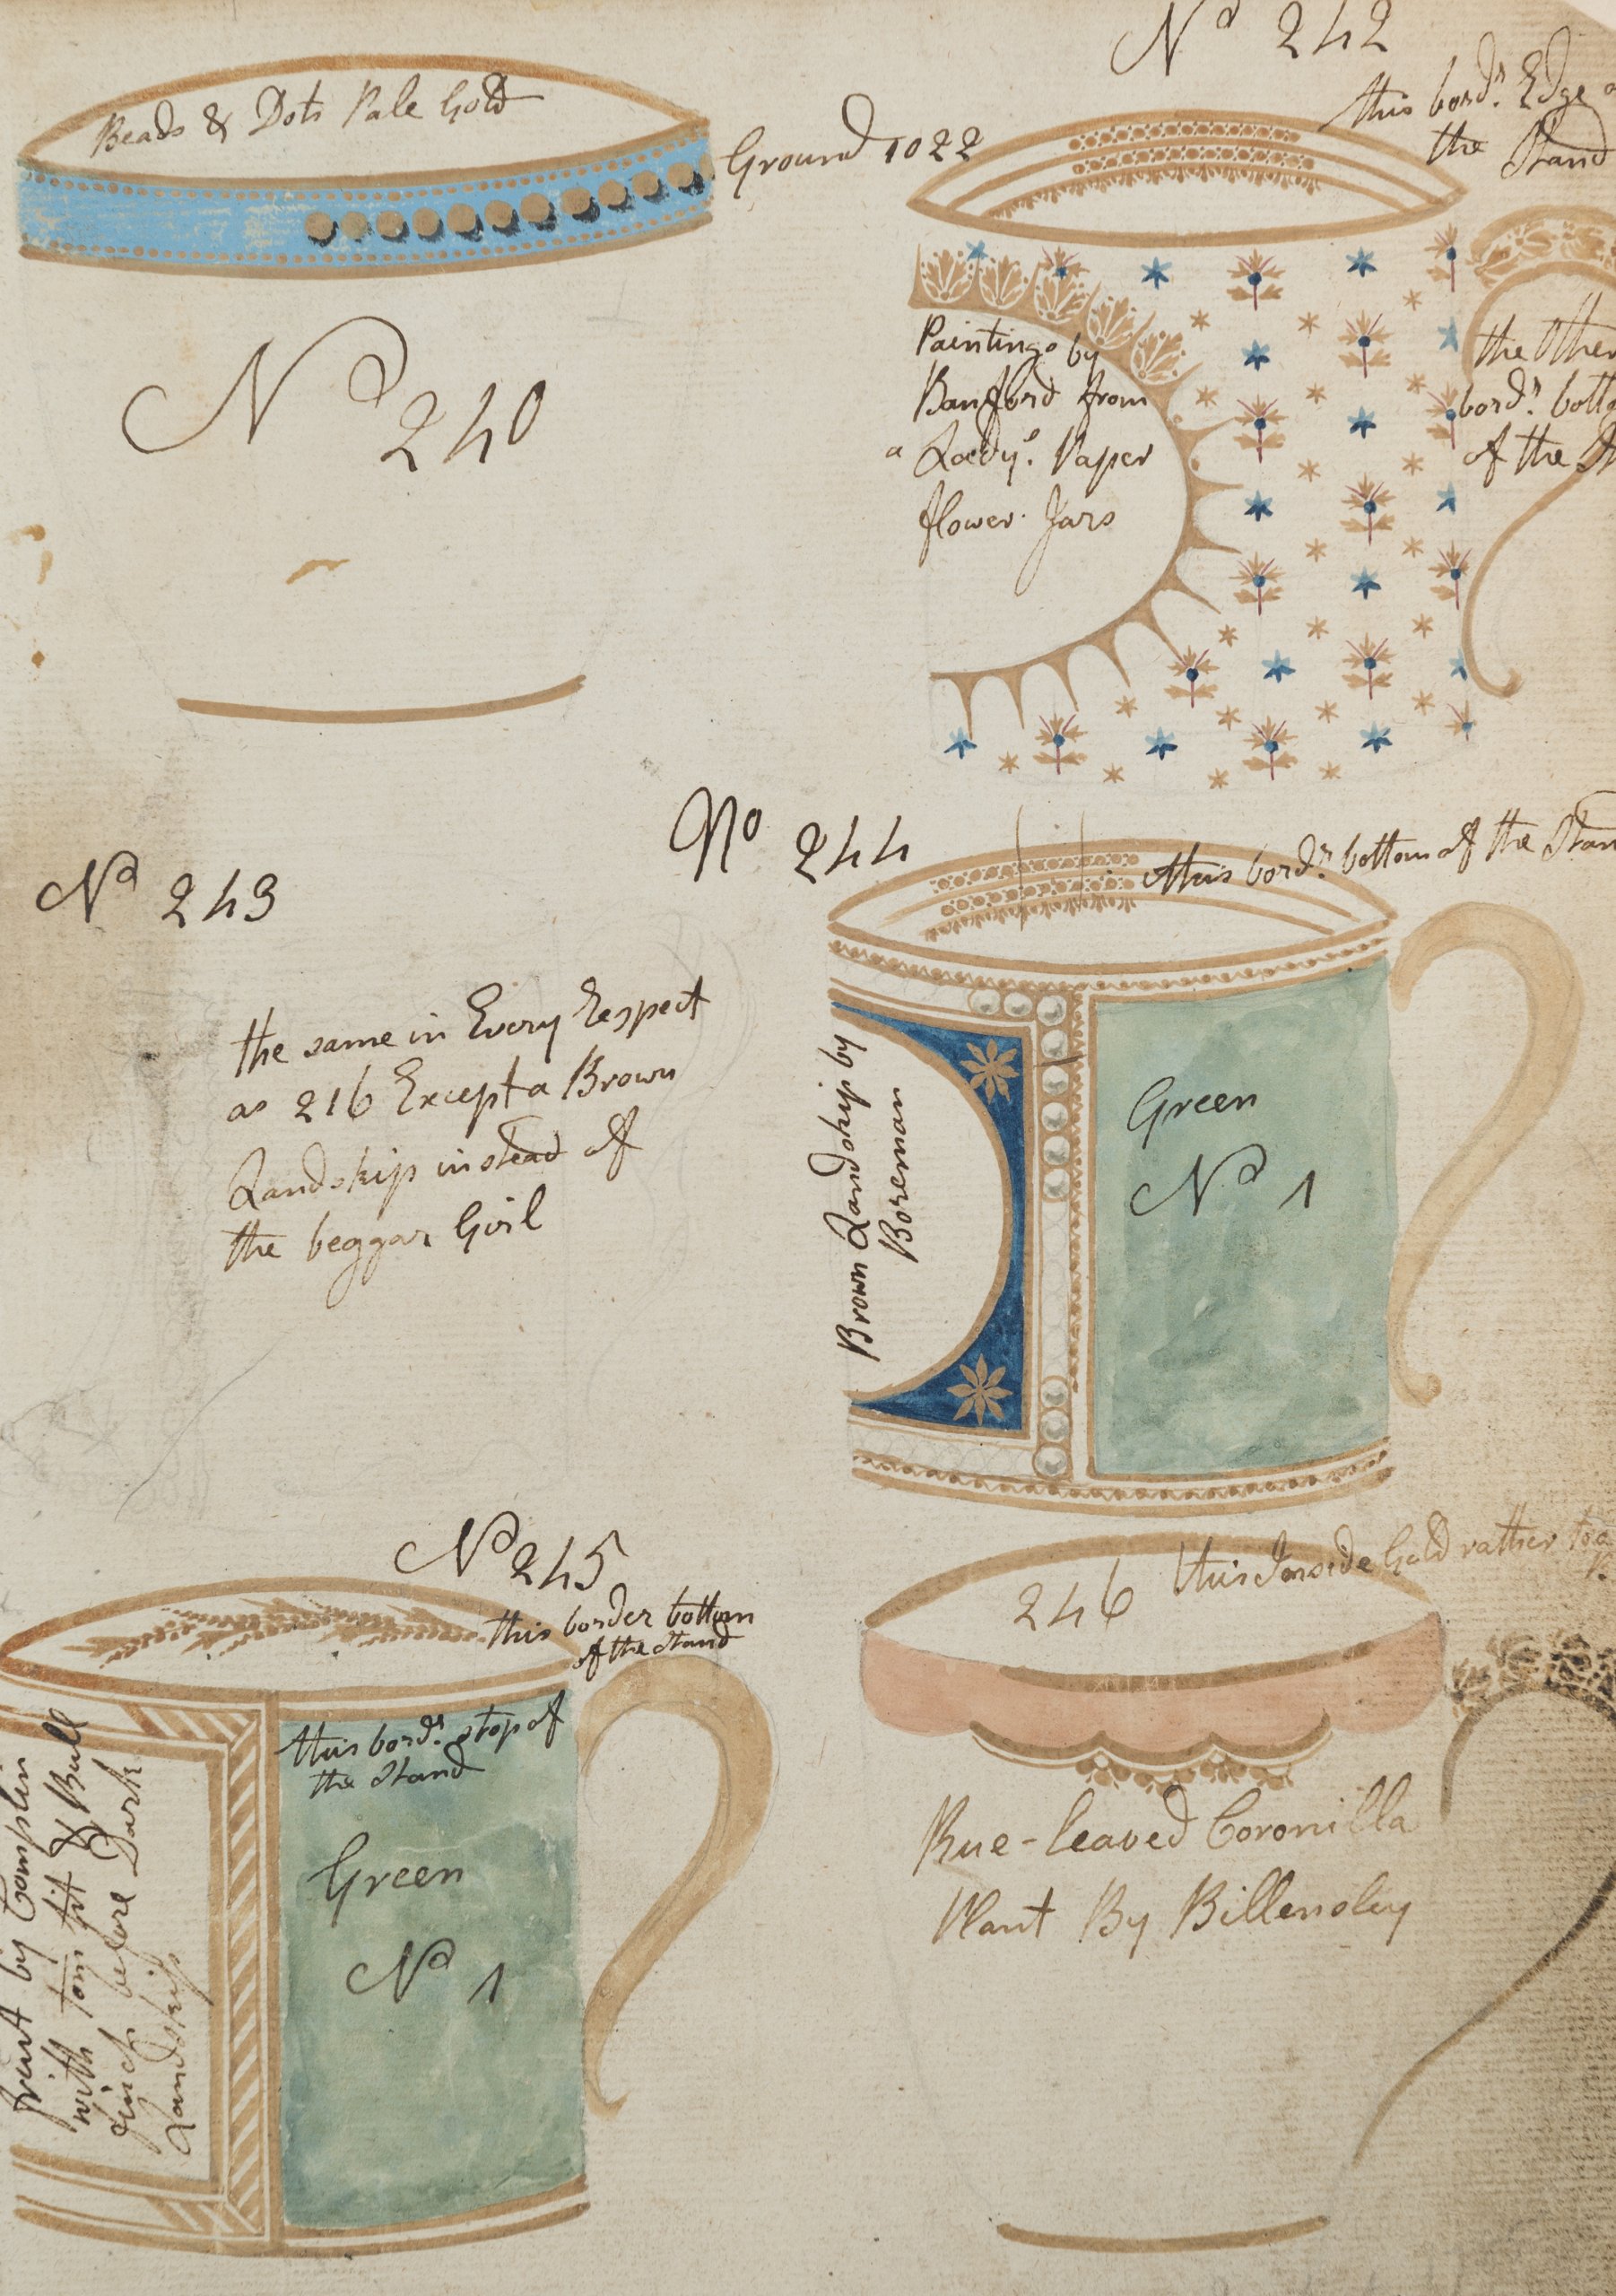 Beads & Dots Pale Gold
Ground 1022
Nº 240
Nº 242
this bordr. Edge
the Stand
Paintings by
Banford from
a Lady's Paper
flower Jars
the Other
bordr. botto
of the
Nº 243
the same in Every Respect
as 216 Except a Brown
Landskip instead of
the beggar Girl
No 244
this bordr. bottom of the Stan
Brown Landskip by
Boreman
Green
Nº 1
Nº 245
this border bottom
of the Stand
this bordr. stop of
the Stand
Green
Nº 1
print by Complin
with tom tit & Bull
finch before Dark
Landskip
246
this Inside Gold rather too
Rue-leaved Coronilla
Plant By Billensley